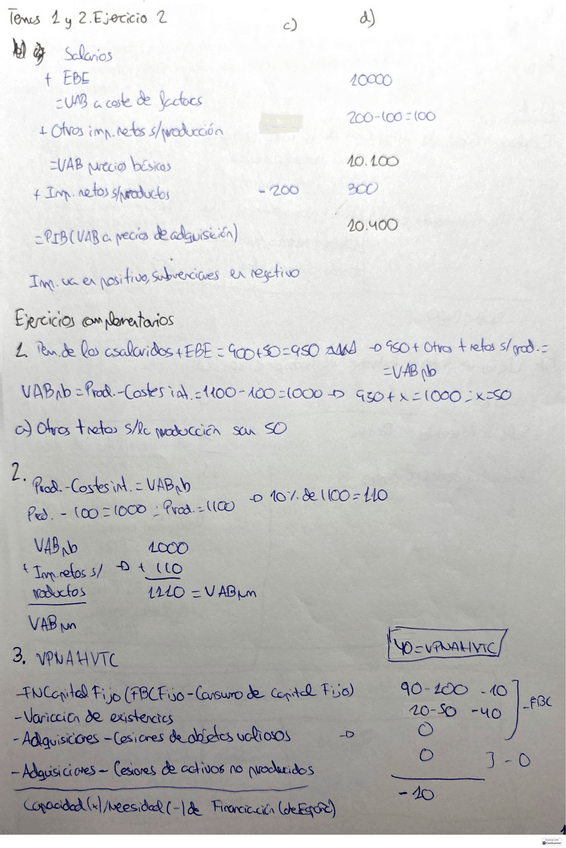 Temas 1 y 2. Ejercicio 2
c) d)
Salarios
+ EBE 10000
= VAB a coste de factores
+ Otros imp. netos s/producción 200-100=100
= VAB precios básicos 10.100
+ Imp. netos s/productos -200 300
= PIB (VAB a precios de adquisición) 10.400
Imp. va en positivo, subvenciones en negativo
Ejercicios complementarios
1. Rem. de los asalariados + EBE = 900+50=950 → 950 + Otros t netos s/prod. =
= VABpb
VABpb = Prod. - Costes int. = 1100-100=1000 → 950+x=1000 = x=50
a) Otros t netos s/la producción son 50
2.
Prod. - Costes int. = VABpb
Prod. - 100=1000 = Prod. = 1100 → 10% de 1100=110
VABpb 1000
+ Imp. netos s/ → + 110
productos 1110 = VABpm
VABpm
3. VPNAHVTC
40=VPNAHVTC
-FNCapital Fijo (FBCFijo-Consumo de Capital Fijo) 90-100 -10
-Variación de existencias 10-50 -40
-FBC
-Adquisiciones - Cesiones de objetos valiosos → 0
-Adquisiciones - Cesiones de activos no producidos 0 } - 0
Capacidad (+)/Necesidad (-) de Financiación (de España) -10